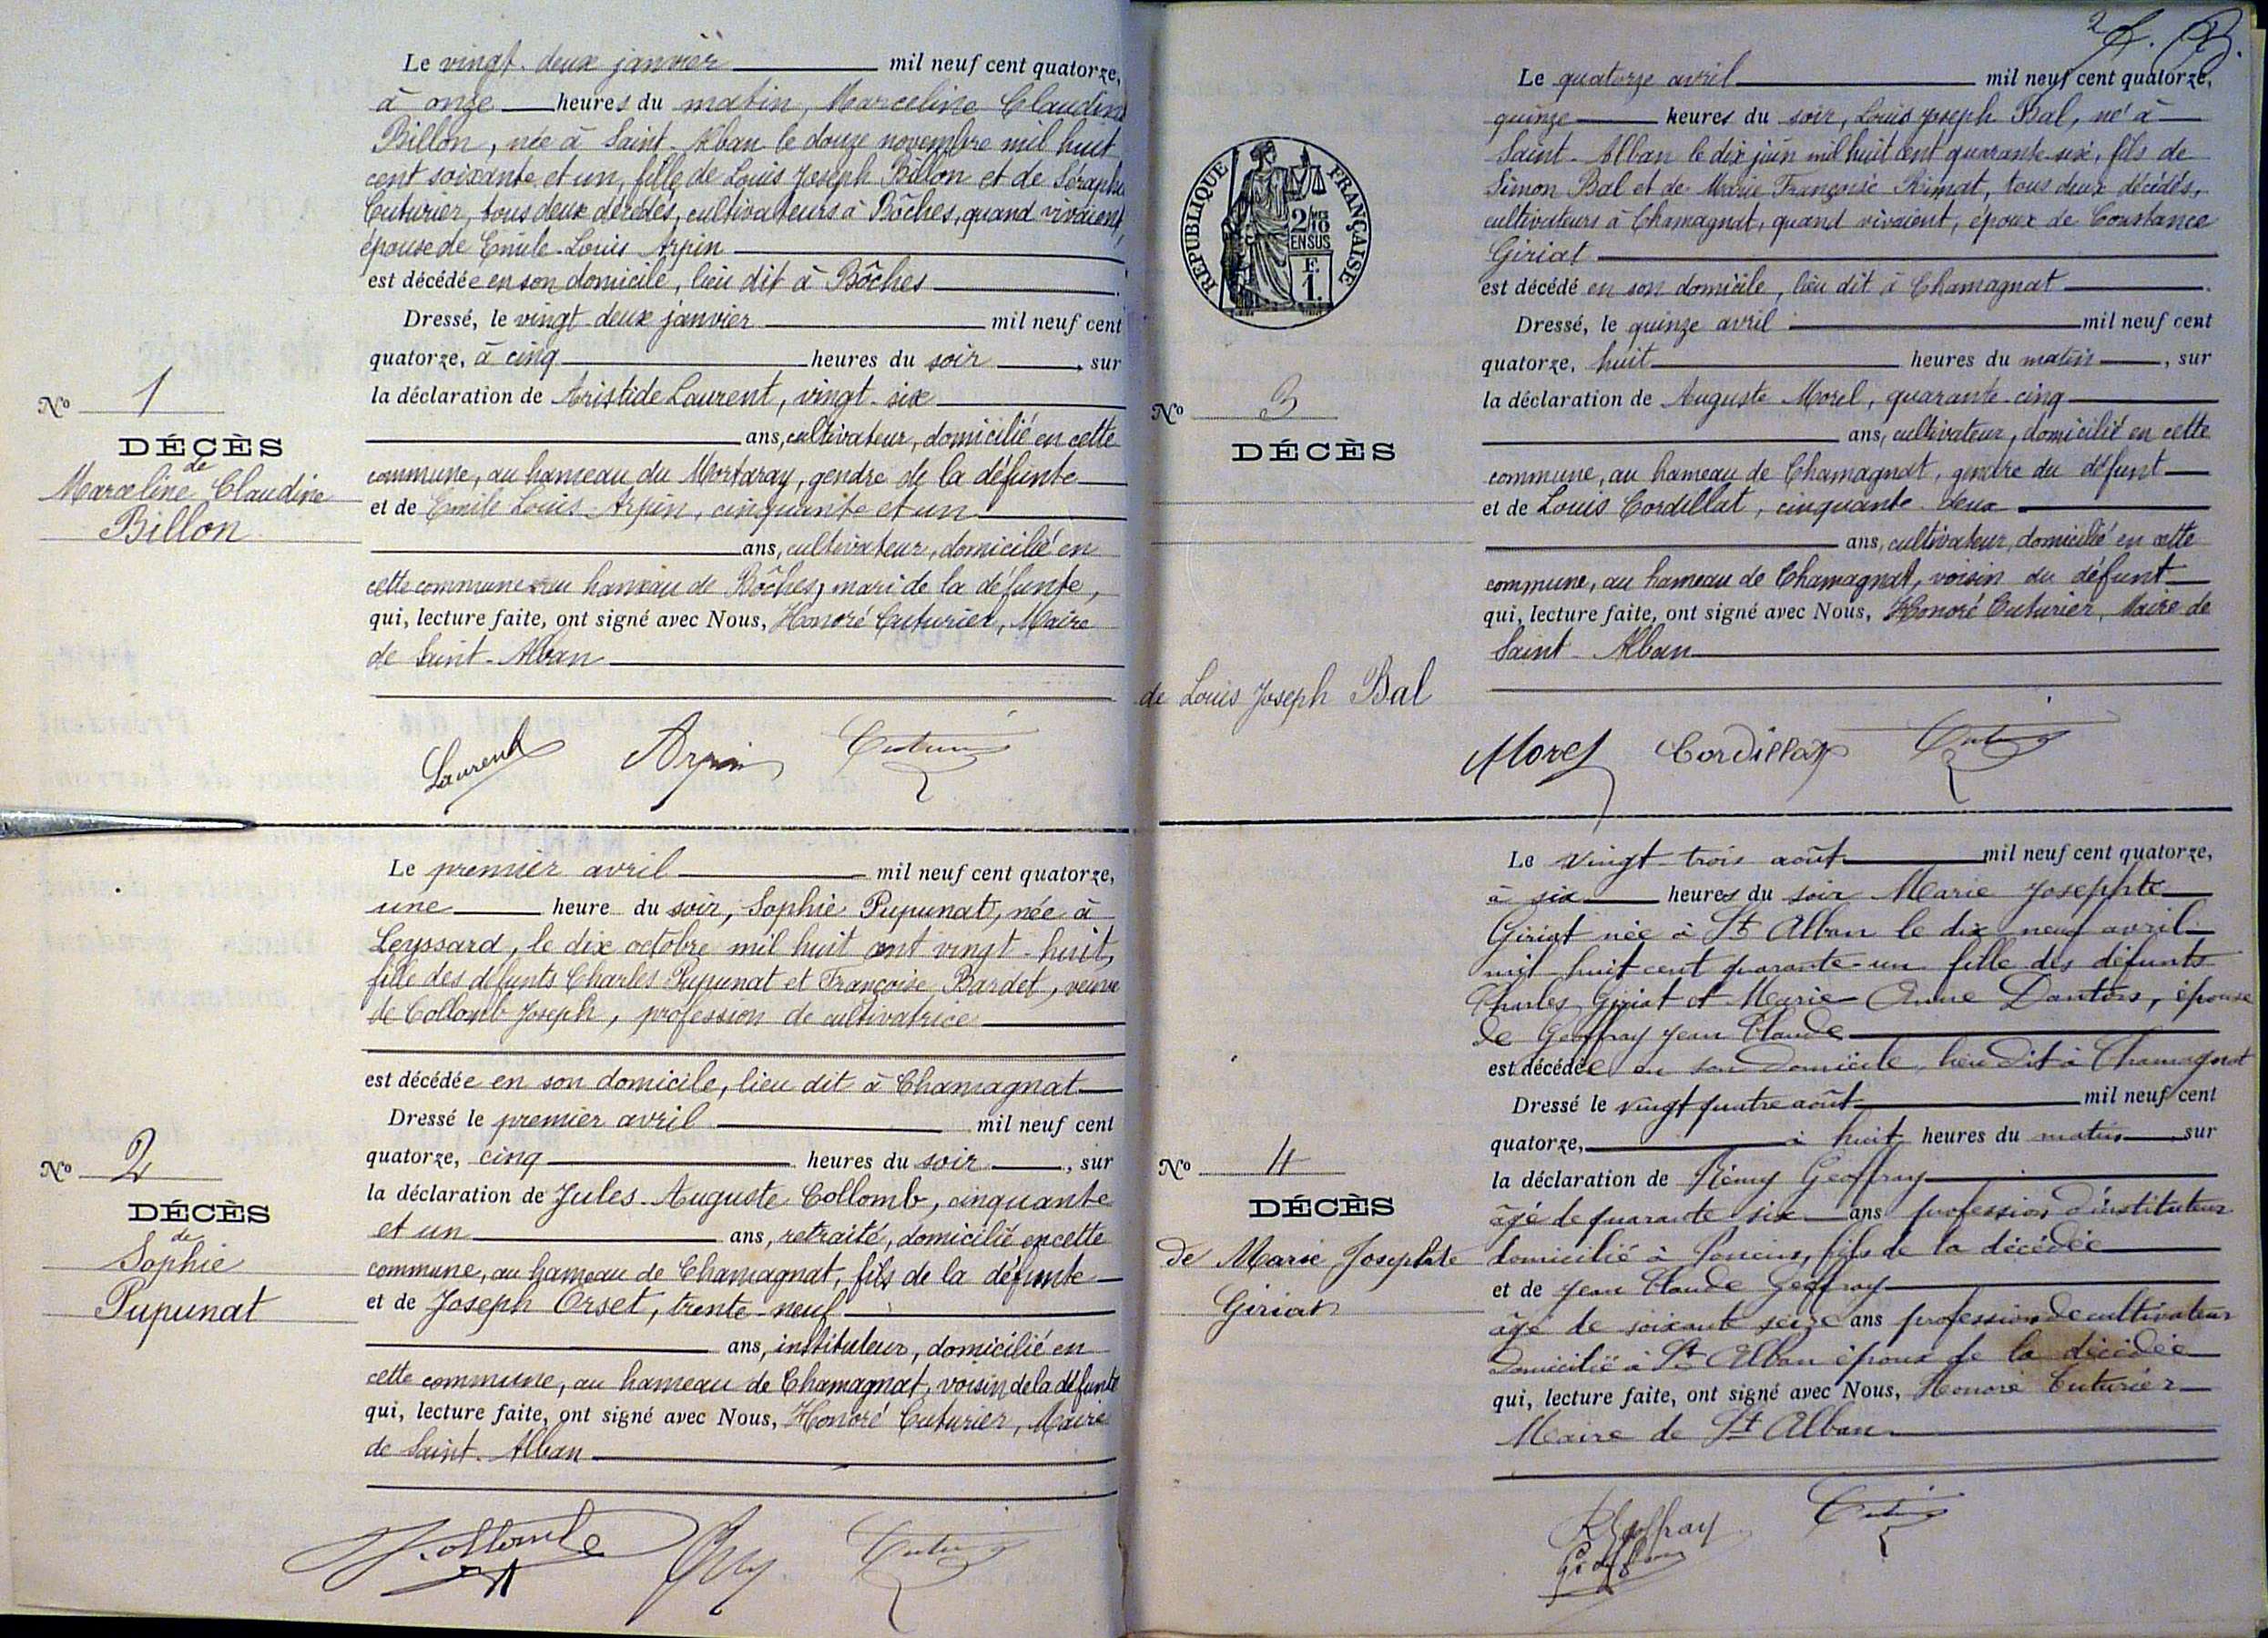 Le vingt-deux janvier mil neuf cent quatorze,
à onze heures du matin, Marceline Claudine
Billon, née à Saint-Alban le douze novembre mil huit
cent soixante et un, fille de Louis Joseph Billon et de Séraphi
Cuturier, tous deux décédés, cultivateurs à Bôches, quand vivaient,
épouse de Emile-Louis Arpin
est décédée en son domicile, lieu dit à Bôches
Dressé, le vingt-deux janvier mil neuf cent
quatorze, à cinq heures du soir, sur
la déclaration de Aristide Laurent, vingt-six
ans, cultivateur, domicilié en cette
commune, au hameau du Mortaray, gendre de la défunte
et de Emile Louis Arpin, cinquante et un
ans, cultivateur, domicilié en
cette commune au hameau de Bôches, mari de la défunte,
qui, lecture faite, ont signé avec Nous, Honoré Cuturier, Maire
de Saint-Alban
No 1
DÉCÈS
de
Marceline Claudine
Billon
Laurent Arpin Cuturier
Le premier avril mil neuf cent quatorze,
une heure du soir, Sophie Pupunat, née à
Leyssard, le dix octobre mil huit cent vingt-huit,
fille des défunts Charles Pupunat et Françoise Bardet, veuve
de Collomb Joseph, profession de cultivatrice
est décédée en son domicile, lieu dit à Chamagnat
Dressé le premier avril mil neuf cent
quatorze, cinq heures du soir, sur
la déclaration de Jules-Auguste Collomb, cinquante
et un ans, retraité, domicilié en cette
commune, au hameau de Chamagnat, fils de la défunte
et de Joseph Orset, trente-neuf
ans, instituteur, domicilié en
cette commune, au hameau de Chamagnat, voisin de la défunte
qui, lecture faite, ont signé avec Nous, Honoré Cuturier, Maire
de Saint-Alban
No 2
DÉCÈS
de
Sophie
Pupunat
Collomb Cuturier
2
Le quatorze avril mil neuf cent quatorze,
quinze heures du soir, Louis Joseph Bal, né à
Saint-Alban le dix juin mil huit cent quarante-six, fils de
Simon Bal et de Marie Françoise Rimat, tous deux décédés,
cultivateurs à Chamagnat, quand vivaient, époux de Constance
Giriat
est décédé en son domicile, lieu dit à Chamagnat
Dressé, le quinze avril mil neuf cent
quatorze, huit heures du matin, sur
la déclaration de Auguste Morel, quarante-cinq
ans, cultivateur, domicilié en cette
commune, au hameau de Chamagnat, gendre du défunt
et de Louis Cordillat, cinquante-deux
ans, cultivateur, domicilié en cette
commune, au hameau de Chamagnat, voisin du défunt
qui, lecture faite, ont signé avec Nous, Honoré Cuturier, Maire de
Saint-Alban
RÉPUBLIQUE FRANÇAISE
2 MES
10
EN SUS
F.
1.
No 3
DÉCÈS
de Louis Joseph Bal
Morel Cordillat Cuturier
Le vingt-trois août mil neuf cent quatorze,
à six heures du soir Marie Josephte
Giriat née à St Alban le dix neuf avril
mil-huit cent quarante-un fille des défunts
Charles Giriat et Marie-Anne Dantois, épouse
de Geoffray Jean Claude
est décédée en son domicile, lieu dit à Chamagnat
Dressé le vingt quatre août mil neuf cent
quatorze, à huit heures du matin sur
la déclaration de Rémy Geoffray
âgé de quarante six ans profession d'instituteur
domicilié à Poncin, fils de la décédée
et de Jean Claude Geoffray
âgé de soixante seize ans profession de cultivateur
domicilié à St Alban époux de la décédée
qui, lecture faite, ont signé avec Nous, Honoré Cuturier
Maire de St Alban
No 4
DÉCÈS
de Marie Josephte
Giriat
R Geoffray Cuturier
Geoffray